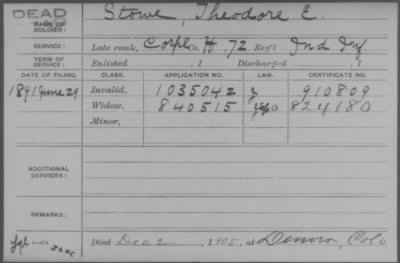 DEAD
NAME OF SOLDIER:
Stowe, Theodore E.
SERVICE:
Late rank, Corpl Co. H, 72 Reg't Ind Inf.
TERM OF SERVICE:
Enlisted , 1 Discharged , 1
DATE OF FILING. CLASS. APPLICATION NO. LAW. CERTIFICATE NO.
1891 June 29 Invalid, 1035042 910809
Widow, 840515 824180
Minor,
ADDITIONAL SERVICES:
REMARKS:
Died Dec 2, 1905, at Denver, Colo